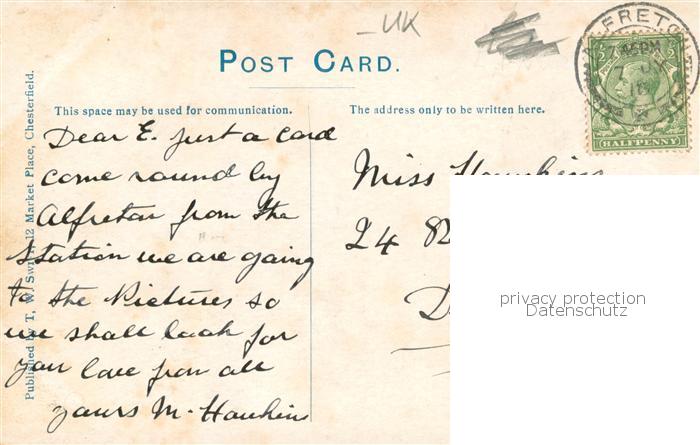 UK
POST CARD.
This space may be used for communication.
The address only to be written here.
ALFRETON
HALFPENNY
Published by T. W. Swift, 12 Market Place, Chesterfield.
Dear E. Just a card
come round by
Alfreton from the
Station we are going
to the Pictures so
we shall look for
you love from all
yours M. Hawkins
Miss
24
privacy protection
Datenschutz